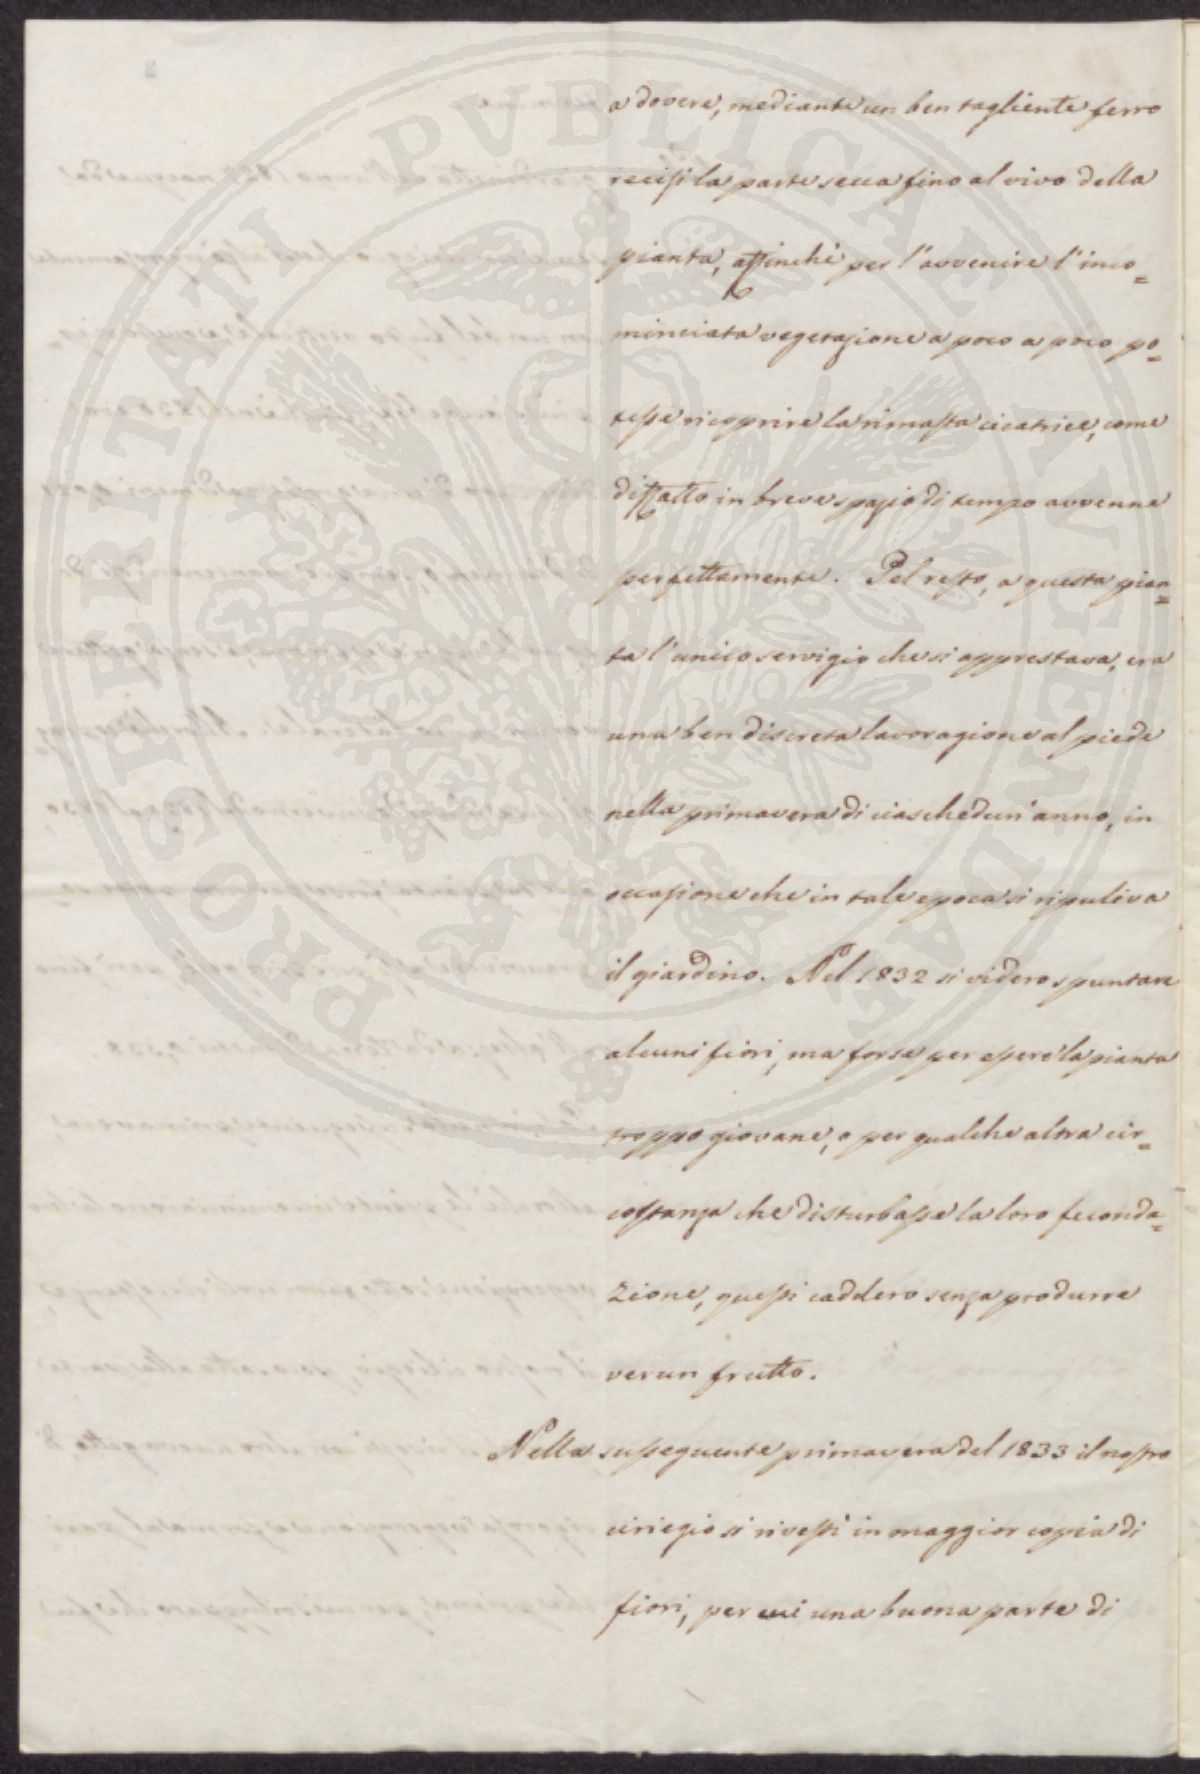 a dovere, mediante un ben tagliente ferro
recisi la parte secca fino al vivo della
pianta, affinchè per l'avvenire l'inco=
minciata vegetazione a poco a poco po=
tesse ricoprire la rimasta cicatrice, come
diffatto in breve spazio di tempo avvenne
perfettamente. Pel resto, a questa pian=
ta l'unico servigio che si apprestava, era
una ben discreta lavoragione al piede
nella primavera di ciaschedun'anno, in
occasione che in tale epoca si ripuliva
il giardino. Nel 1832 si videro spuntare
alcuni fiori, ma forse per essere la pianta
troppo giovane, o per qualche altra cir=
costanza che disturbasse la loro feconda=
zione, questi caddero senza produrre
verun frutto.
Nella susseguente primavera del 1833 il nostro
ciriegio si rivestì in maggior copia di
fiori, per cui una buona parte di
PROSPERITATI PVBLICAE AVGENDAE